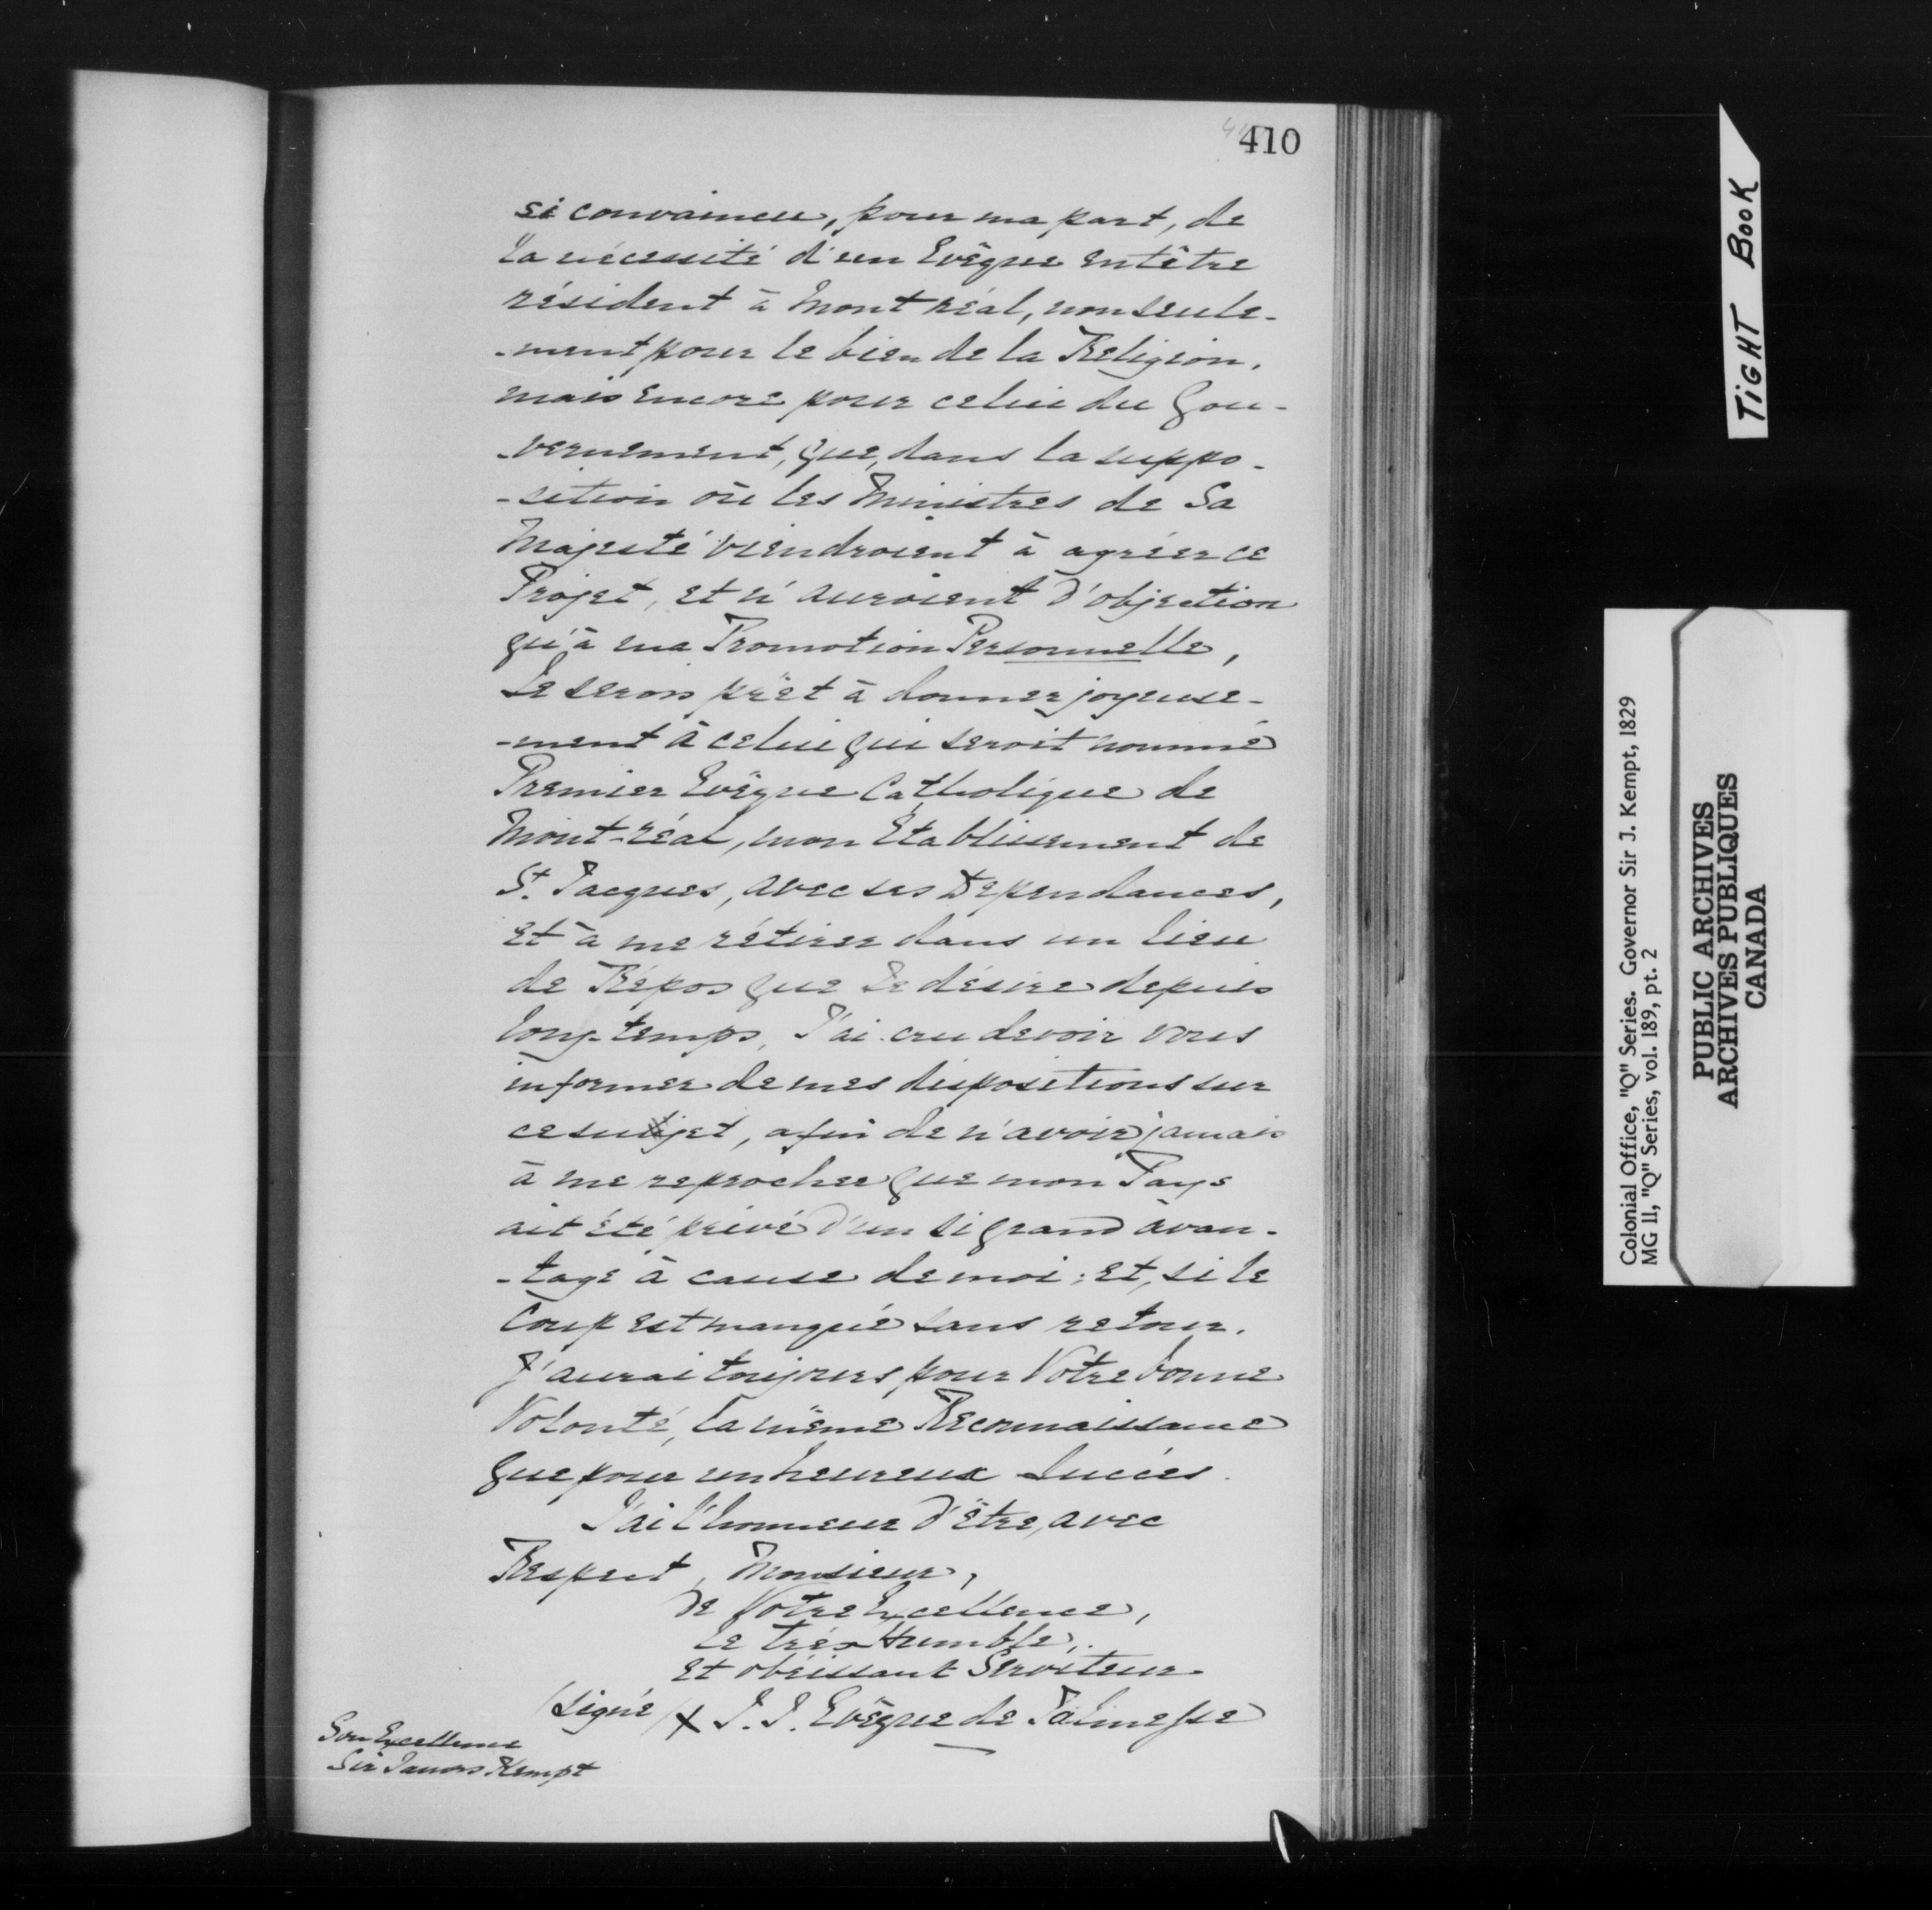 410
si convaincu, pour ma part, de
la nécessité d'un Evêque entêtre
résident à Mont réal, non seule-
-ment pour le bien de la Religion,
mais encore pour celui du Gou-
-vernement, que, dans la suppo-
-sition où les Ministres de Sa
Majesté viendroient à agréer ce
Projet, et n'auroient d'objection
qu'à ma Promotion Personnelle,
Je serois prêt à donner joyeuse-
-ment à celui qui seroit nommé
Premier Evêque Catholique de
Mont-réal, mon Etablissement de
St. Jacques, avec ses Dépendances,
et à me rétirer dans un lieu
de Répos que Je désire depuis
long-temps, J'ai cru devoir vous
informer de mes dispositions sur
ce sujet, afin de n'avoir jamais
à me reprocher que mon Pays
ait été privé d'un si grand avan-
-tage à cause de moi; et, si le
Coup est manqué sans retour.
J'aurai toujours pour Votre bonne
Volonté, la même Reconnaissance
que pour un heureux Succès.
J'ai l'honneur d'être, avec
Respect, Monsieur,
De Votre Excellence,
Le très Humble,
et obéissant Serviteur.
(Signé) + J. J. Evêque de Telmesse
Son Excellence
Sir James Kempt
TIGHT BOOK
Colonial Office, "Q" Series. Governor Sir J. Kempt, 1829
MG 11, "Q" Series, vol. 189, pt. 2
PUBLIC ARCHIVES
ARCHIVES PUBLIQUES
CANADA